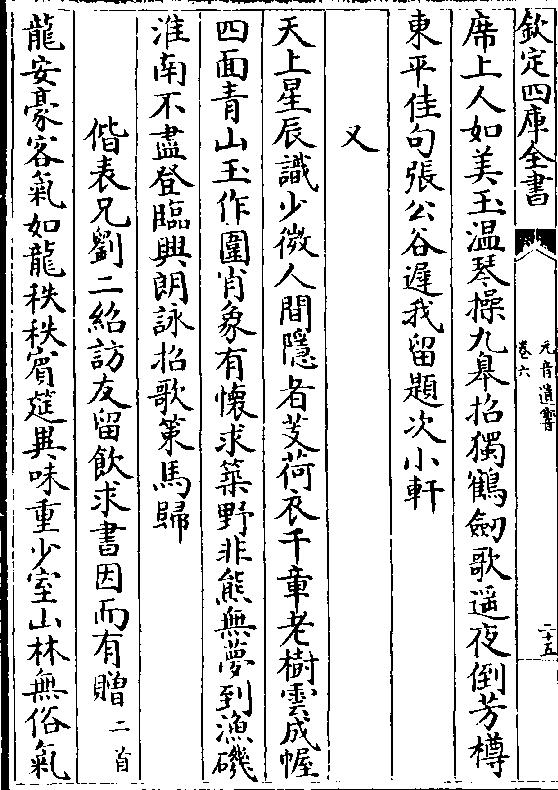 欽定四庫全書
元音遺響
卷六
二十五
席上人如美玉温琴操九皋招獨鶴劒歌遥夜倒芳樽
東平佳句張公谷遲我留題次小軒
又
天上星辰識少微人間隱者芰荷衣千章老樹雲成幄
四面青山玉作圍肖象有懷求築野非熊無夢到漁磯
淮南不盡登臨興朗詠招歌策馬歸
偕表兄劉二紹訪友留飲求書因而有贈二首
龍安豪客氣如龍秩秩賓筵異味重少室山林無俗氣